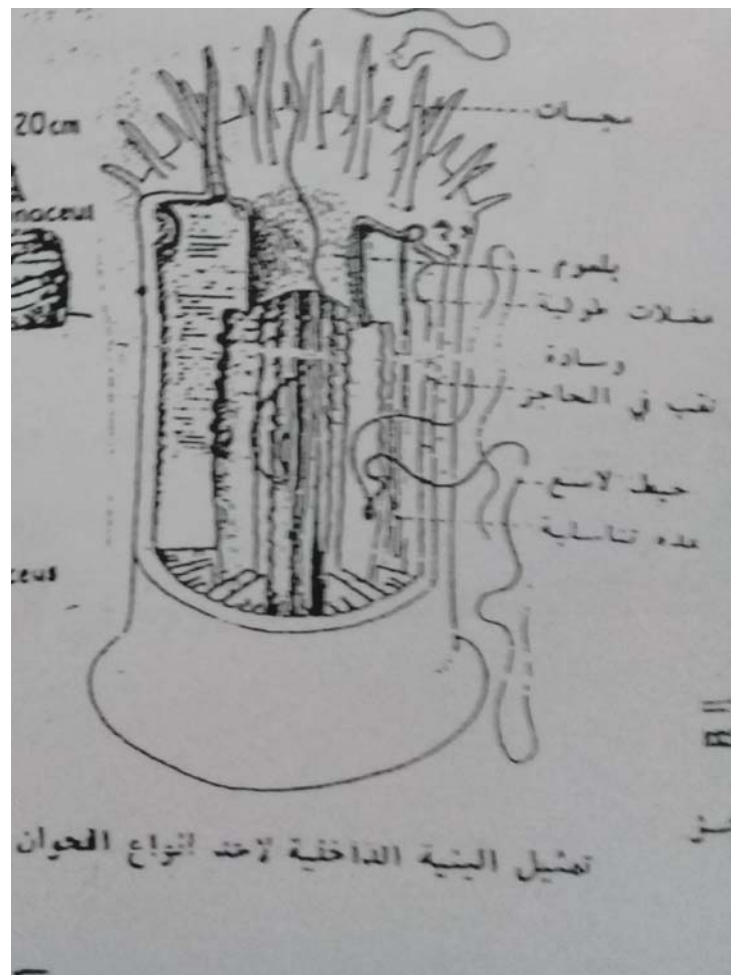 20 cm
مجسات
بلعوم
عضلات طولية
وسادة
ثقب في الحاجز
خيط لاسع
غدد تناسلية
تمثيل البنية الداخلية لاحد انواع